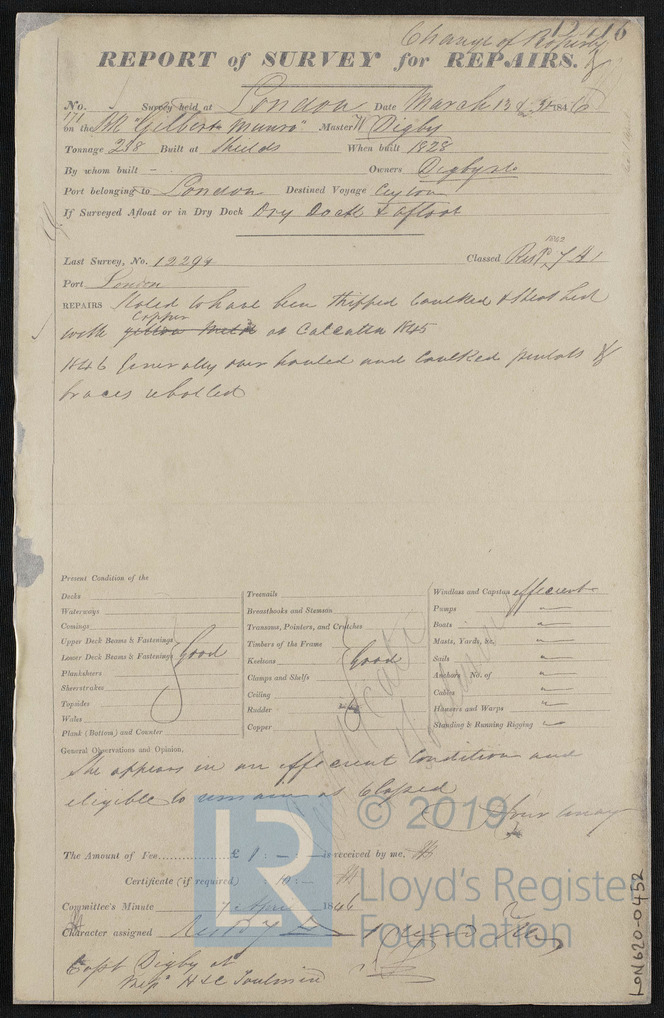 Change of Property
REPORT of SURVEY for REPAIRS.
No. Survey held at London Date March 13 1846
on the "Gilbert Munro" Master Digby
Tonnage 238 Built at Shields When built 1828
By whom built - Owners Digby & Co
Port belonging to London Destined Voyage Ceylon
If Surveyed Afloat or in Dry Dock Dry Dock & afloat
Last Survey, No. 12294 Classed 1842
Port London
REPAIRS Stated to have been stripped Caulked & Sheathed
with yellow metal Copper at Calcutta 1845
1846 Generally over hauled and Caulked pintals &
braces rebolted
Present Condition of the
Decks
Waterways
Comings
Upper Deck Beams & Fastenings
Lower Deck Beams & Fastenings Good
Planksheers
Sheerstrakes
Topsides
Wales
Plank (Bottom) and Counter
Treenails
Breasthooks and Stemson
Transoms, Pointers, and Crutches
Timbers of the Frame
Keelsons Good
Clamps and Shelfs
Ceiling
Rudder
Copper
Windlass and Capstan efficient
Pumps "
Boats "
Masts, Yards, &c. "
Sails "
Anchors No. of "
Cables "
Hawsers and Warps "
Standing & Running Rigging "
General Observations and Opinion.
She appears in an efficient Condition and
eligible to remain as Classed
The Amount of Fee £ 1 : - : - is received by me,
Certificate (if required) 10 : -
Committee's Minute 7 April 1846
Character assigned
Capt Digby at
Mess H & C Toulmin
© 2019
LR
Lloyd's Register
Foundation
LON620-0452